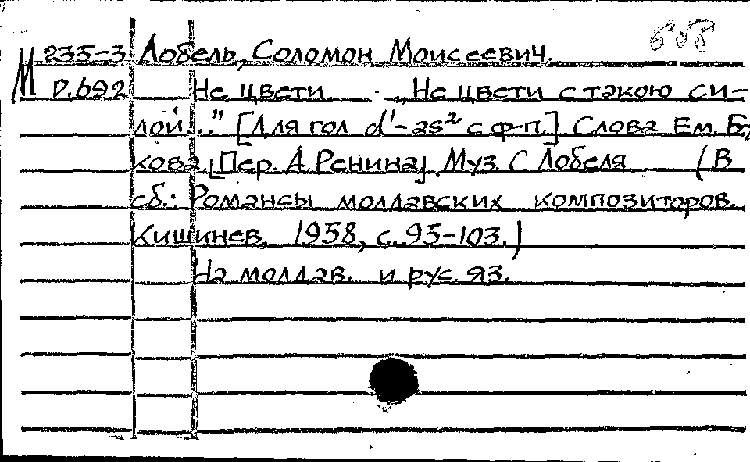 М 235-3 Лобель, Соломон Моисеевич.
Р.692 Не цвети „Не цвети с такою си-
лой..." [Для гол d'-as² с ф-п.] Слова Ем. Бу
кова [Пер. А Ренина] Муз. С Лобеля (В
сб.: Романсы молдавских композиторов.
Кишинев, 1958, с. 95-103.)
На молдав. и рус. яз.